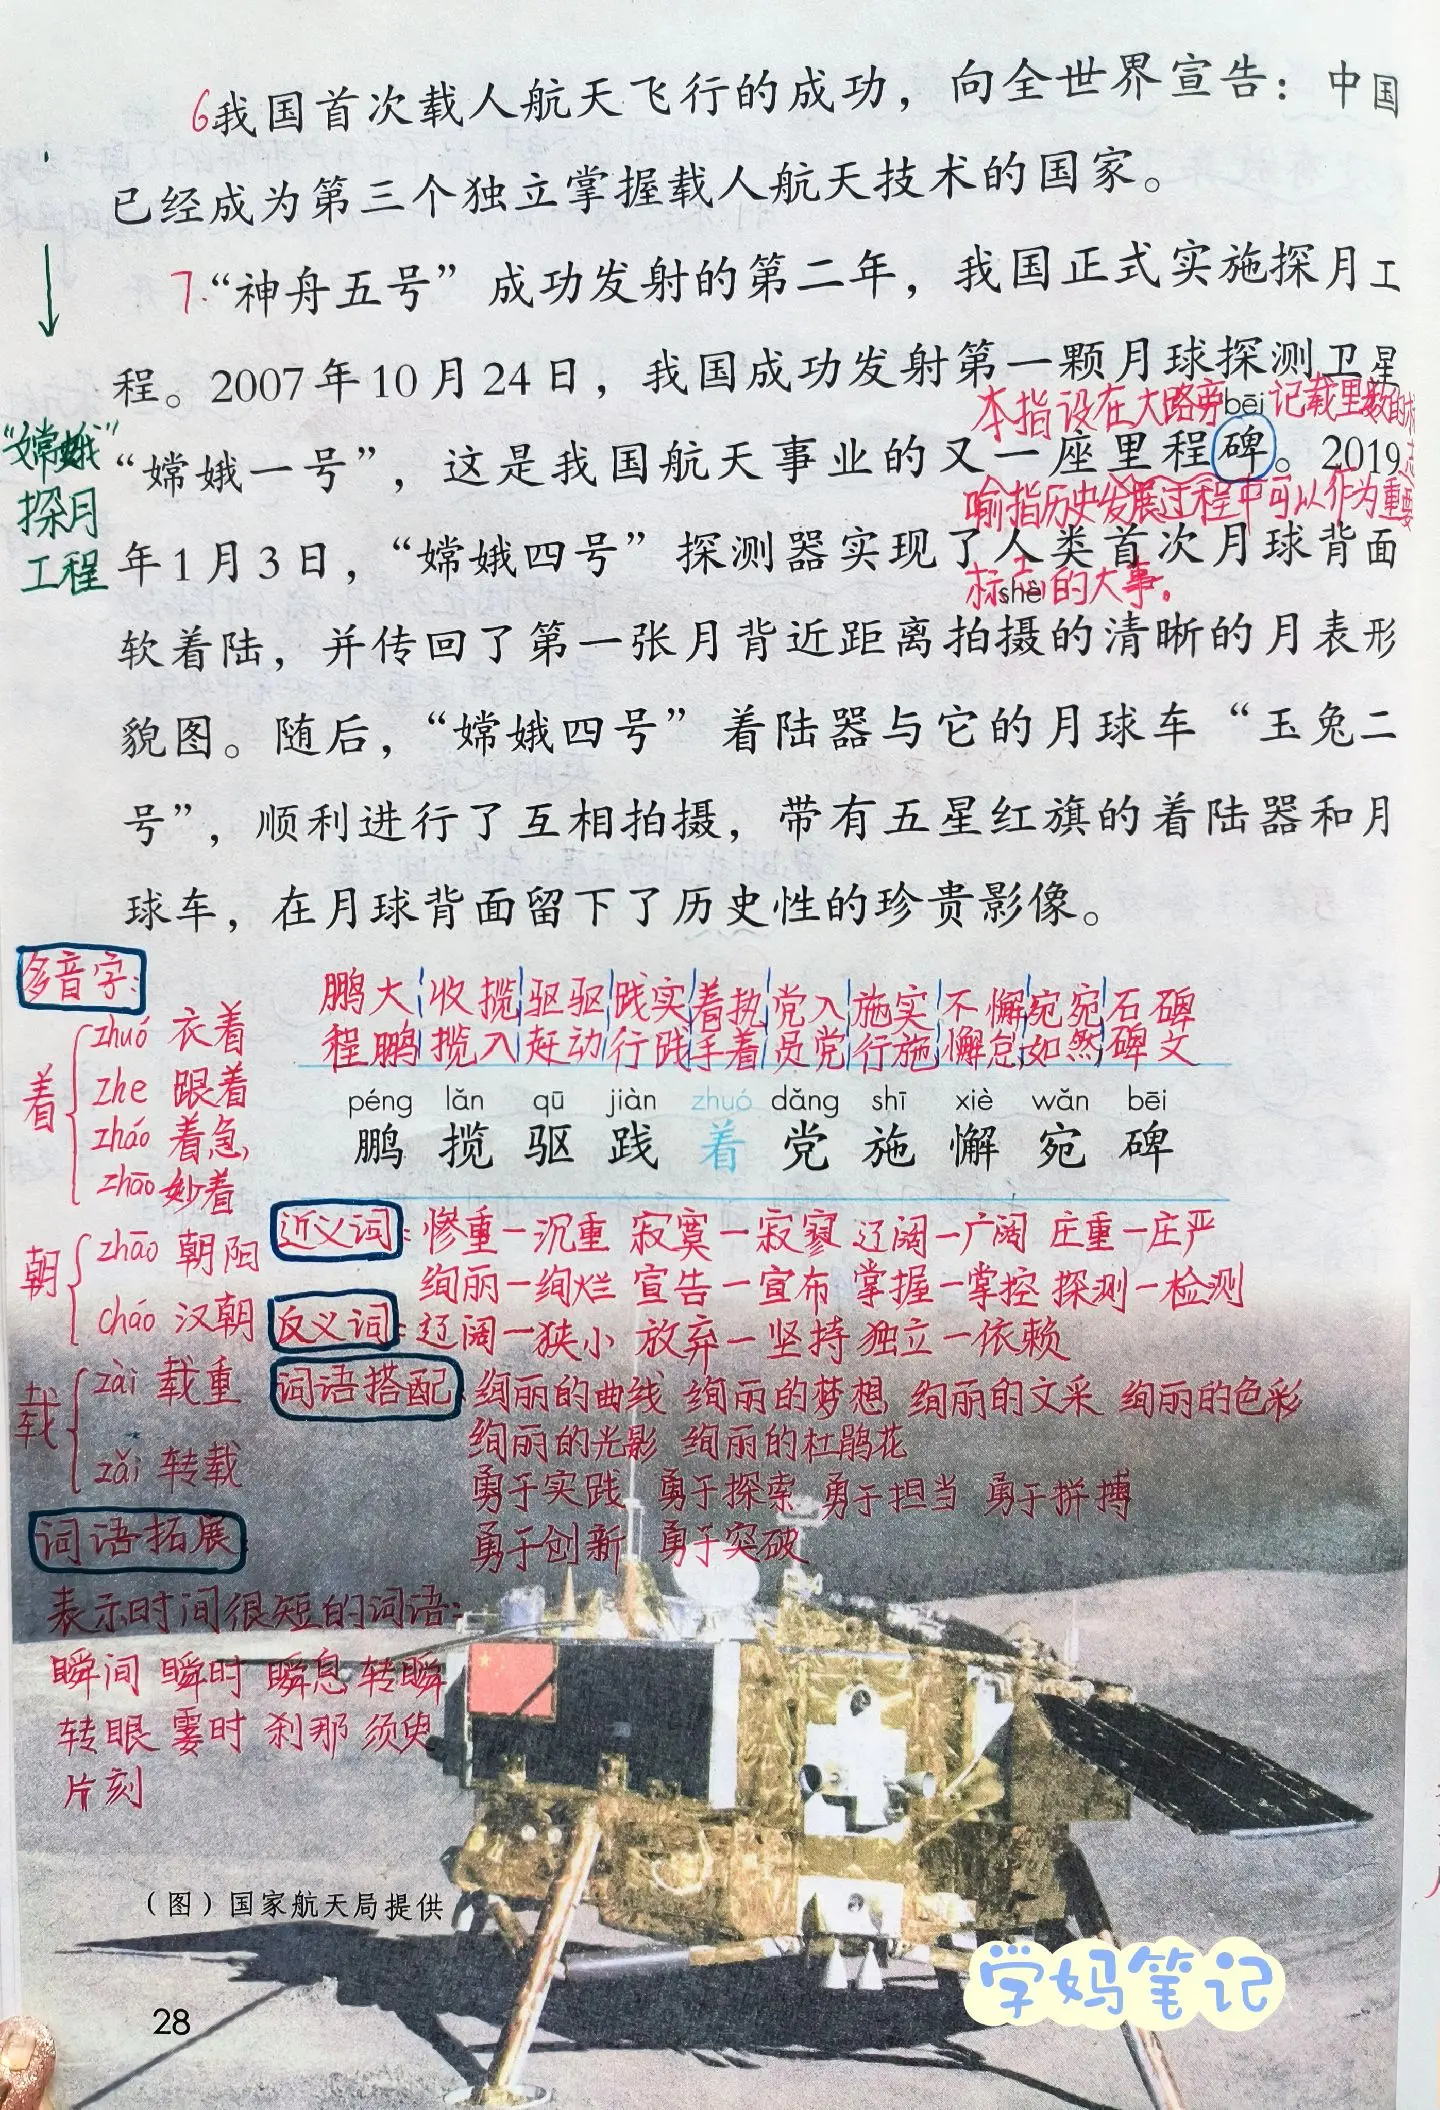 6我国首次载人航天飞行的成功，向全世界宣告：中国
已经成为第三个独立掌握载人航天技术的国家。
7.“神舟五号”成功发射的第二年，我国正式实施探月工
程。2007年10月24日，我国成功发射第一颗月球探测卫星
本指设在大路旁 bēi 记载里数的标
“嫦娥一号”，这是我国航天事业的又一座里程碑。2019
志
喻指历史发展过程中可以作为重要
年1月3日，“嫦娥四号”探测器实现了人类首次月球背面
标志的大事。
shè
软着陆，并传回了第一张月背近距离拍摄的清晰的月表形
貌图。随后，“嫦娥四号”着陆器与它的月球车“玉兔二
号”，顺利进行了互相拍摄，带有五星红旗的着陆器和月
球车，在月球背面留下了历史性的珍贵影像。
“嫦娥”
探月
工程
多音字：
着
zhuó 衣着
zhe 跟着
zháo 着急，
zhāo 妙着
朝
zhāo 朝阳
cháo 汉朝
载
zài 载重
zǎi 转载
鹏大 收揽 驱驱 践实 着执 党入 施实 不懈 宛宛 石碑
程鹏 揽入 赶动 行践 手着 员党 行施 懈怠 如然 碑文
péng lǎn qū jiàn zhuó dǎng shī xiè wǎn bēi
鹏 揽 驱 践 着 党 施 懈 宛 碑
近义词：惨重—沉重 寂寞—寂寥 辽阔—广阔 庄重—庄严
绚丽—绚烂 宣告—宣布 掌握—掌控 探测—检测
反义词：辽阔—狭小 放弃—坚持 独立—依赖
词语搭配 绚丽的曲线 绚丽的梦想 绚丽的文采 绚丽的色彩
绚丽的光影 绚丽的杜鹃花
勇于实践 勇于探索 勇于担当 勇于拼搏
勇于创新 勇于突破
词语拓展
表示时间很短的词语：
瞬间 瞬时 瞬息 转瞬
转眼 霎时 刹那 须臾
片刻
（图）国家航天局提供
28
学妈笔记